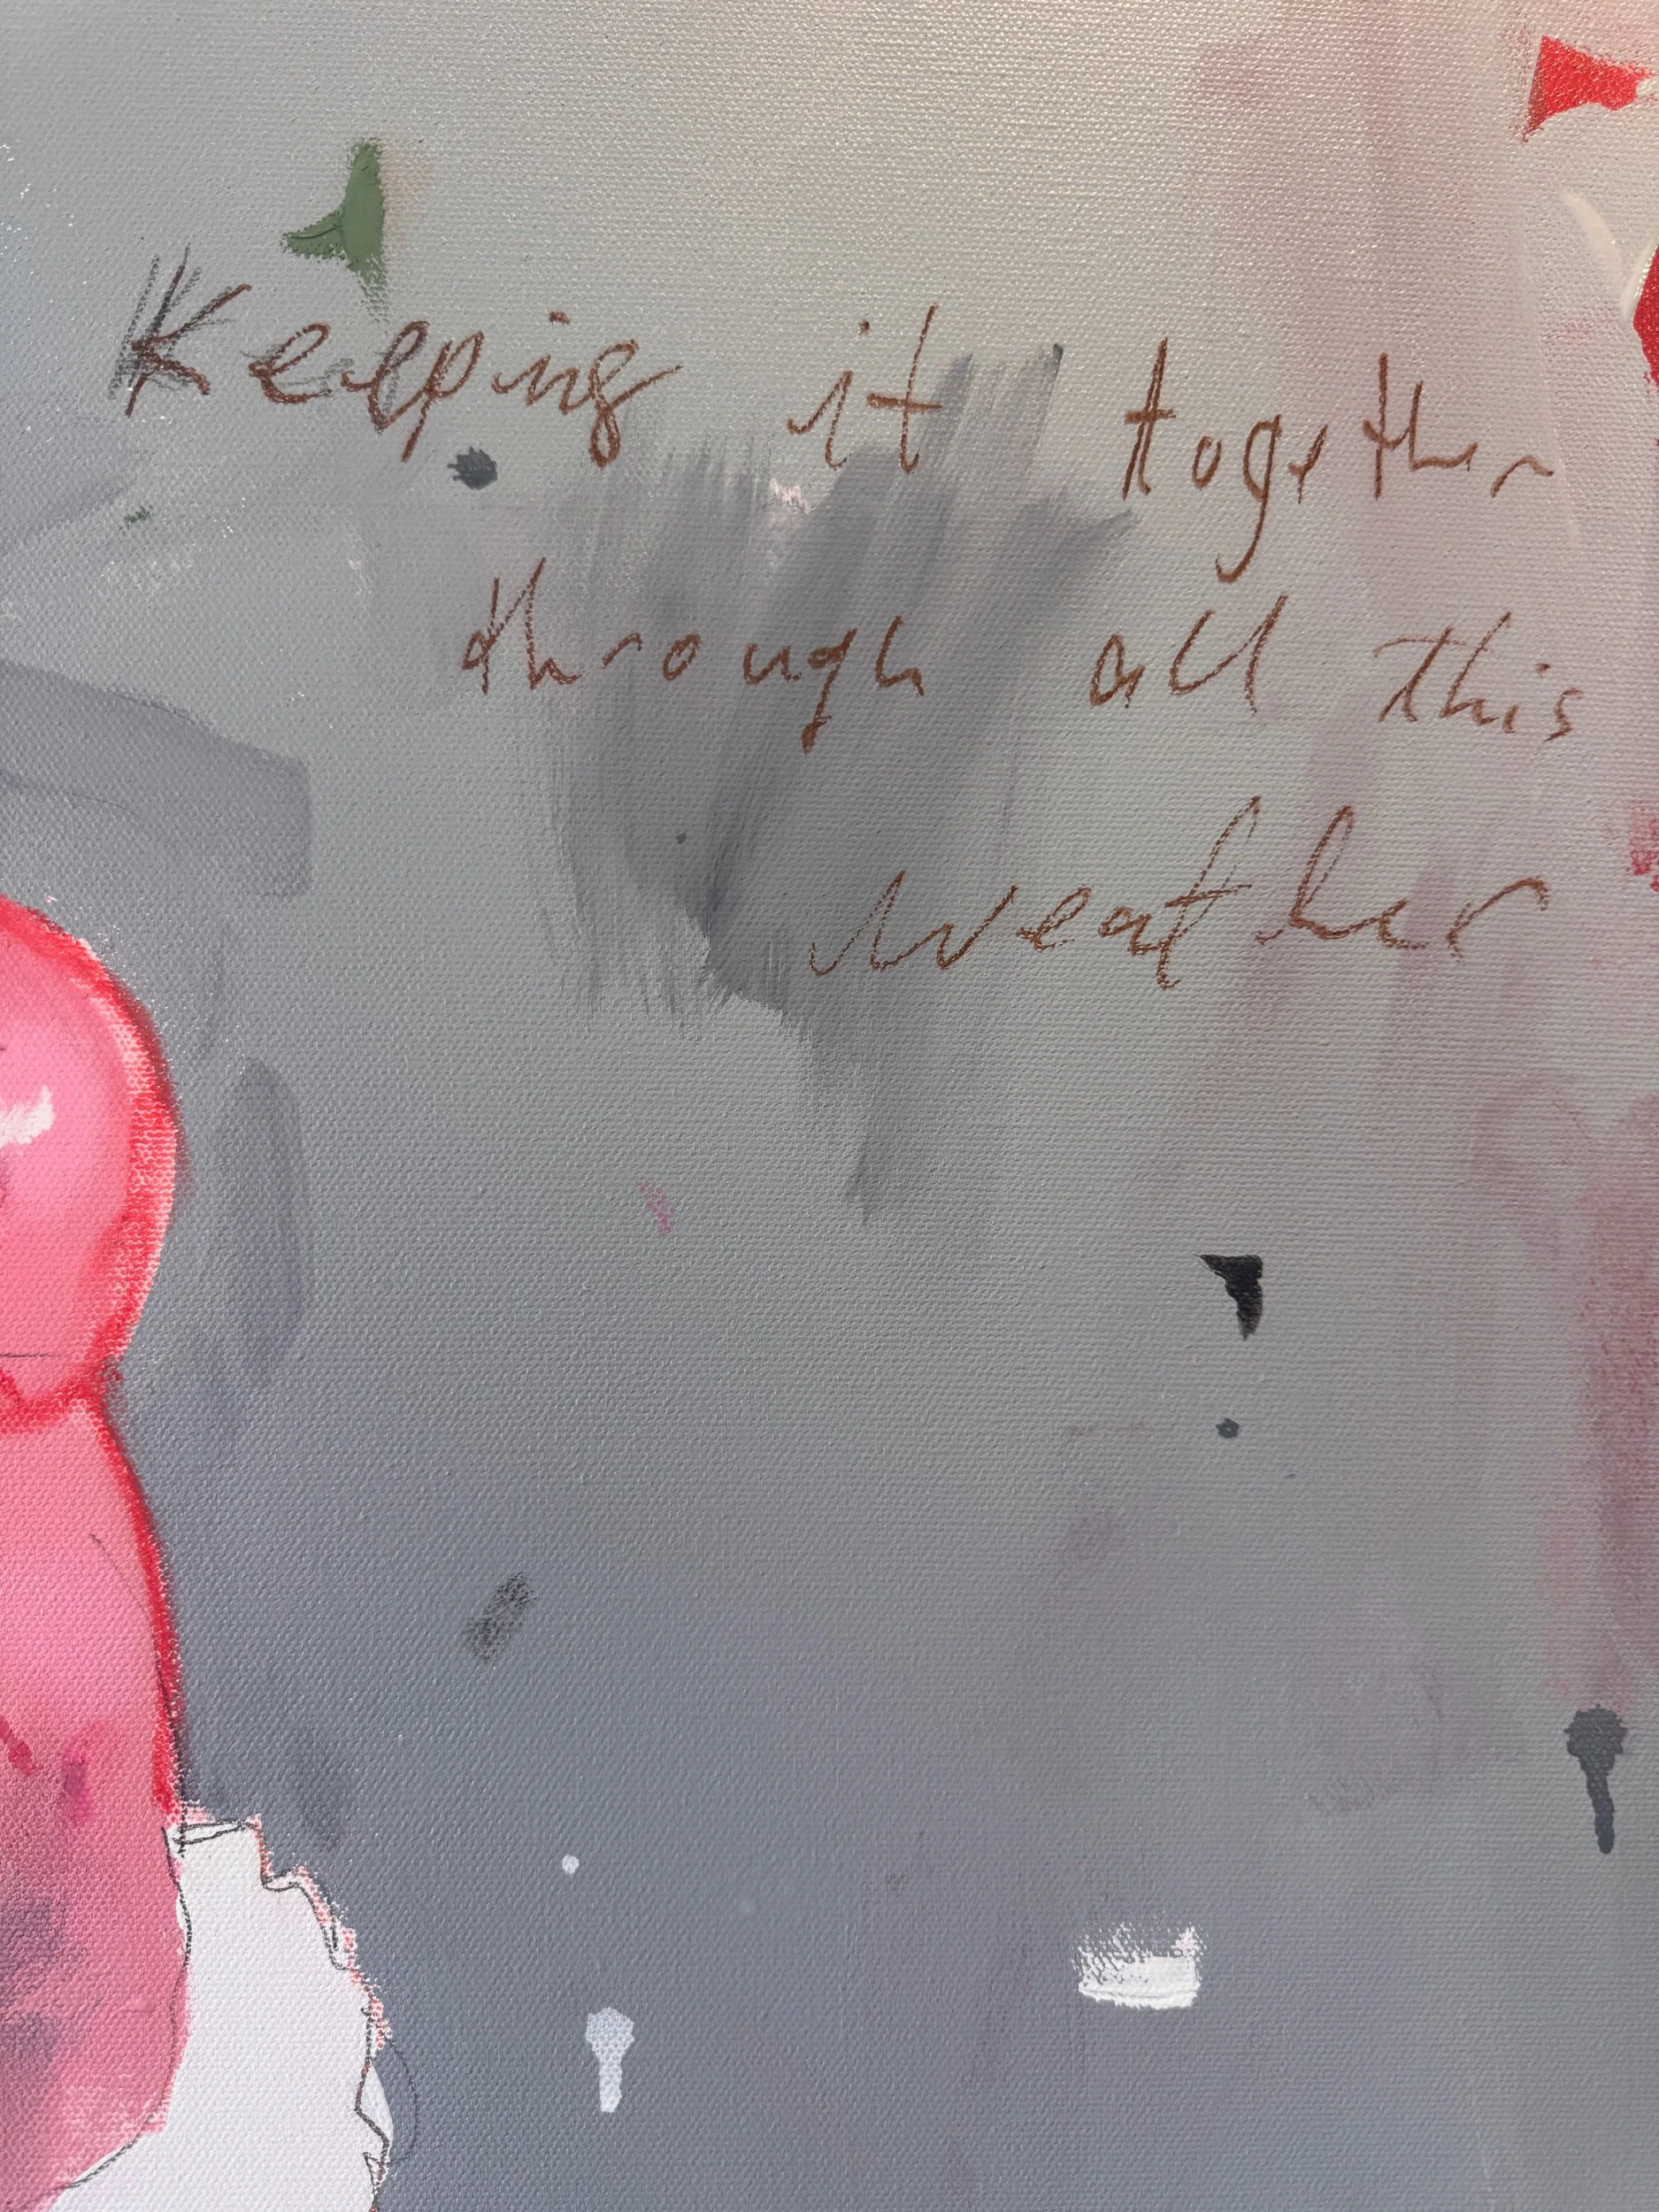 Keeping it together
through all this
weather